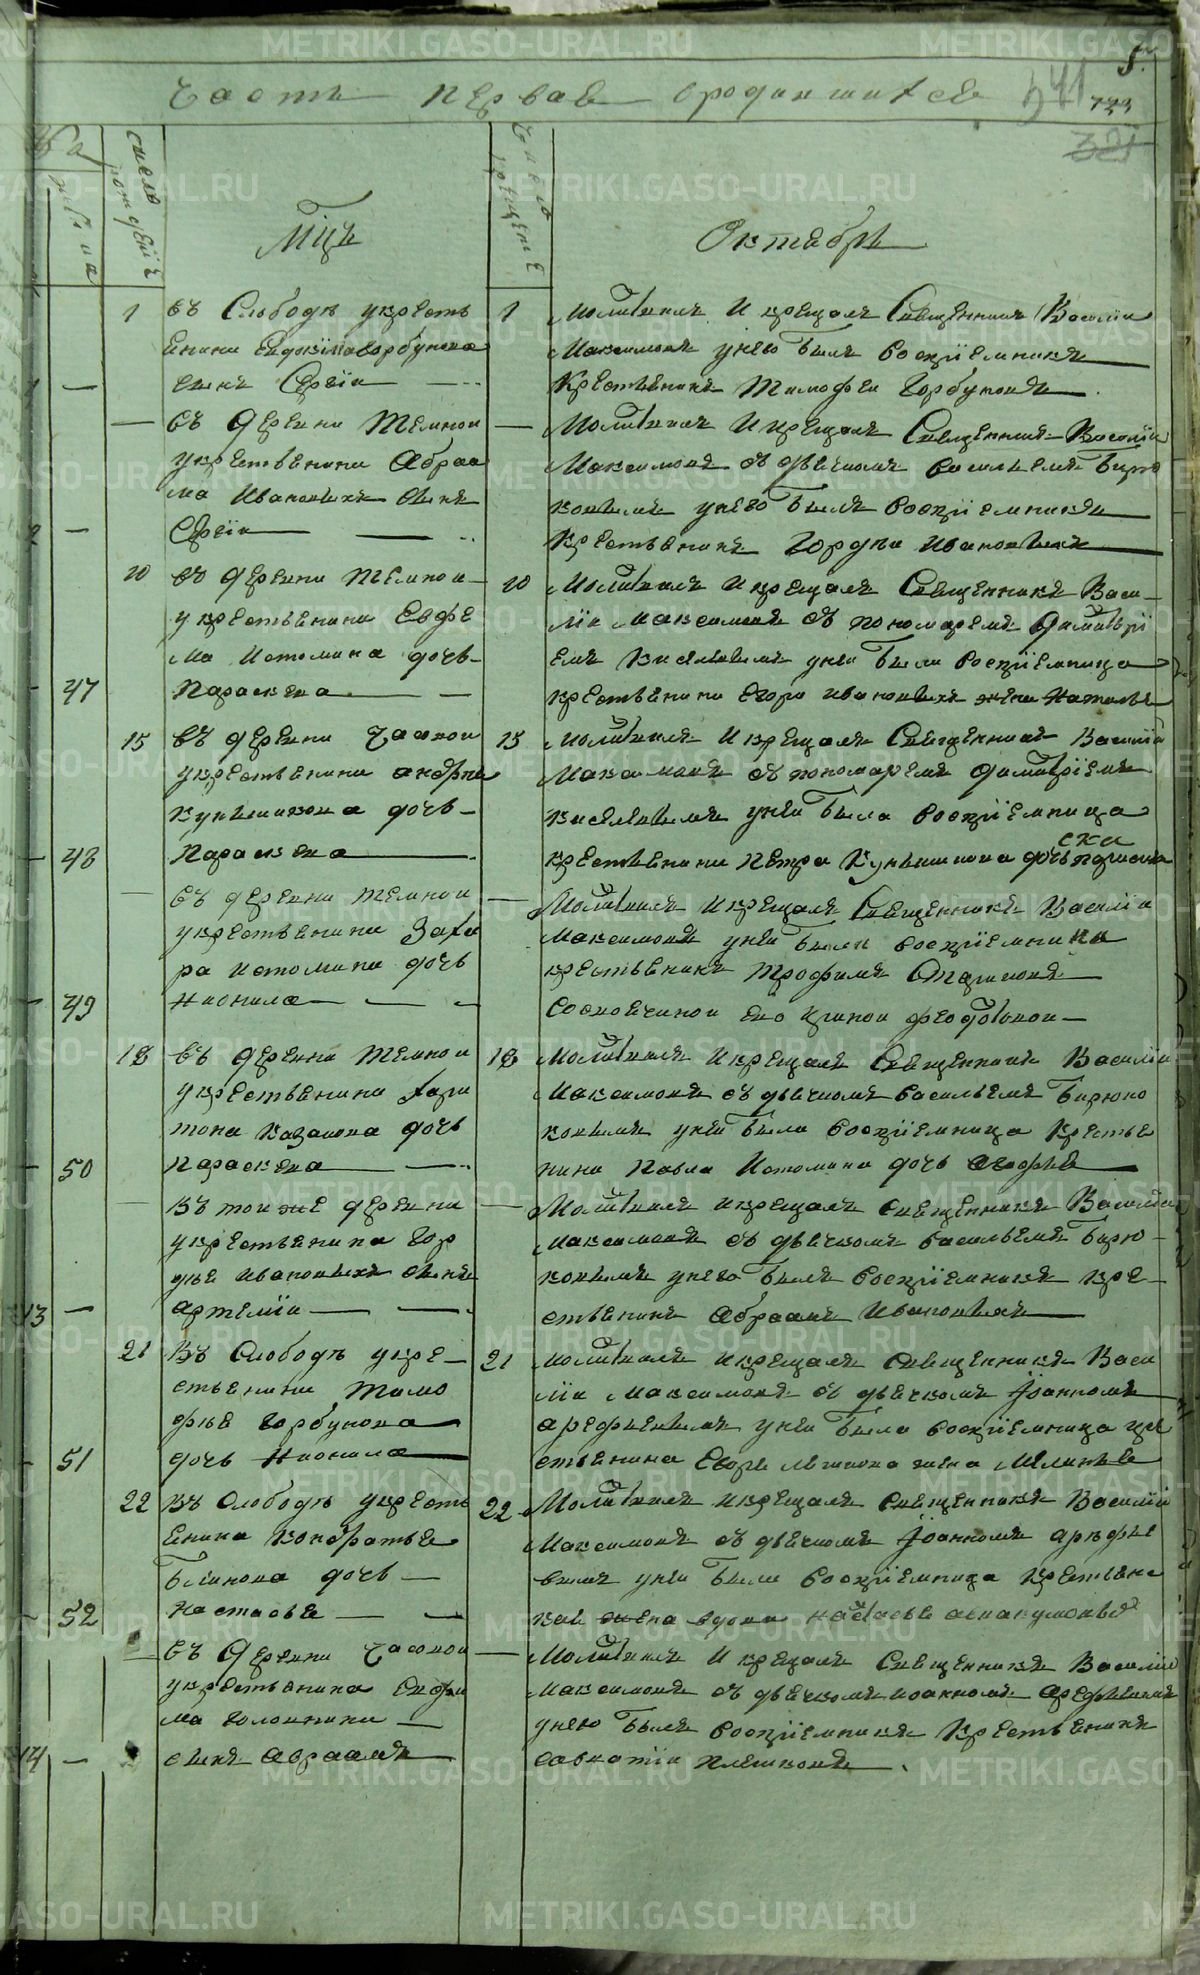 5.
Часть первая о родившихся 541 723
321
числ рождений
число крещен
Мцъ Октября
1 въ Слободѣ у крестъ
енина Евдокима Горбунова
сынъ Сергіи
1 Молитвилъ и крещалъ Священникъ Василіи
Максимовъ у него былъ восприемникъ
Крестьянинъ Тимофеи Горбуновъ
въ Деревни Темнои
у крестьянина Абраа
ма Ивановыхъ сынъ
Сергіи
Молитвилъ и крещалъ Священникъ Василіи
Максимовъ съ дьячкомъ васильемъ Бирю
ковымъ у него былъ восприемникъ
Крестьянинъ Гордѣи Ивановыхъ
10 въ деревни Темнои
у крестьянина Евфе
ма Истомина дочь
47 Параскева
10 Молитвилъ и крещалъ Священникъ Васи
ліи Максимовъ съ пономаремъ Димитрі
емъ Киселевымъ у неи была восприемница
крестьянина Егора Ивановыхъ жена Наталья
15 въ деревни Часовои
у крестьянина Андрея
Куншикова дочь
48 Параскева
15 Молитвилъ и крещалъ Священникъ Василіи
Максимовъ съ пономаремъ Димитріемъ
Киселевымъ у неи была восприемница
ска
крестьянина Петра дочь
въ деревни Темнои
у крестьянина Заха
ра Истомина дочь
49 Неонила
Молитвилъ и крещалъ Священникъ Василіи
Максимовъ у неи были восприемники
крестьянинъ Трофимъ Стариковъ
со снохи федотовои
18 въ деревни Темнои
у крестьянина Хари
тона Казакова дочь
50 Параскева
18 Молитвилъ и крещалъ Священникъ Василіи
Максимовъ съ дьячкомъ васильемъ Бирюко
ковымъ у неи была восприемница Крестья
нина Павла Истомина дочь Агафья
въ тои же деревни
у крестьянина Гор
дѣя Ивановыхъ сынъ
13 Артеміи
Молитвилъ и крещалъ Священникъ Василіи
Максимовъ съ дьячкомъ васильемъ Бирю
ковымъ у него былъ восприемникъ кре
стьянинъ Абраамъ Ивановыхъ
21 въ Слободѣ у кре
стьянина Тимо
фея Горбунова
51 дочь Неонила
21 Молитвилъ и крещалъ Священникъ Васи
ліи Максимовъ съ дьячкомъ Іоанномъ
Арефьевымъ у неи была восприемница кре
стьянина Егора жена Меланья
22 въ Слободѣ у крестъ
енина Кондратья
Блинова дочь
52 Настасья
22 Молитвилъ и крещалъ Священникъ Василіи
Максимовъ съ дьячкомъ Іоанномъ Арефье
вымъ у неи была восприемница Крестьянс
кая жена вдова Настасья
въ Деревни Часовои
у крестьянина Евфи
маГолошкина
14 сынъ Авраамъ
Молитвилъ и крещалъ Священникъ Василіи
Максимовъ съ дьячкомъ Иоанномъ Арефьевымъ
у него былъ восприемникъ Крестьянинъ
Савватіи Плешковъ
METRIKI.GASO-URAL.RU